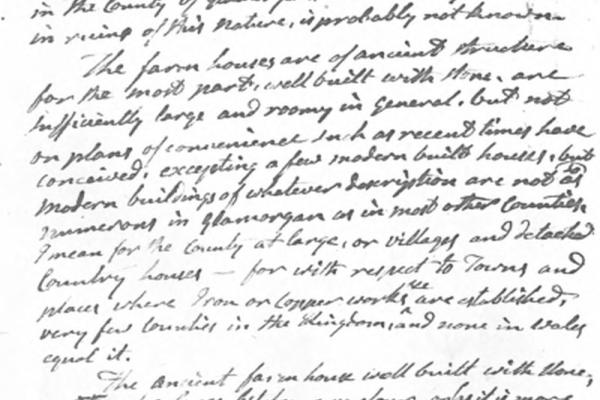 in the County of
in ruins of this nature, is probably not known
The farm houses are of ancient structure
for the most part, well built with stone, are
sufficiently large and roomy in general, but not
on plans of convenience such as recent times have
conceived, excepting a few modern built houses, but
modern buildings of whatever description are not so
numerous in Glamorgan as in most other Counties.
I mean for the County at large, or villages and detached
Country houses — for with respect to Towns and
places where Iron or Copper works are established,
very few Counties in the Kingdom, and none in Wales
equal it.
The ancient farm house well built with stone,